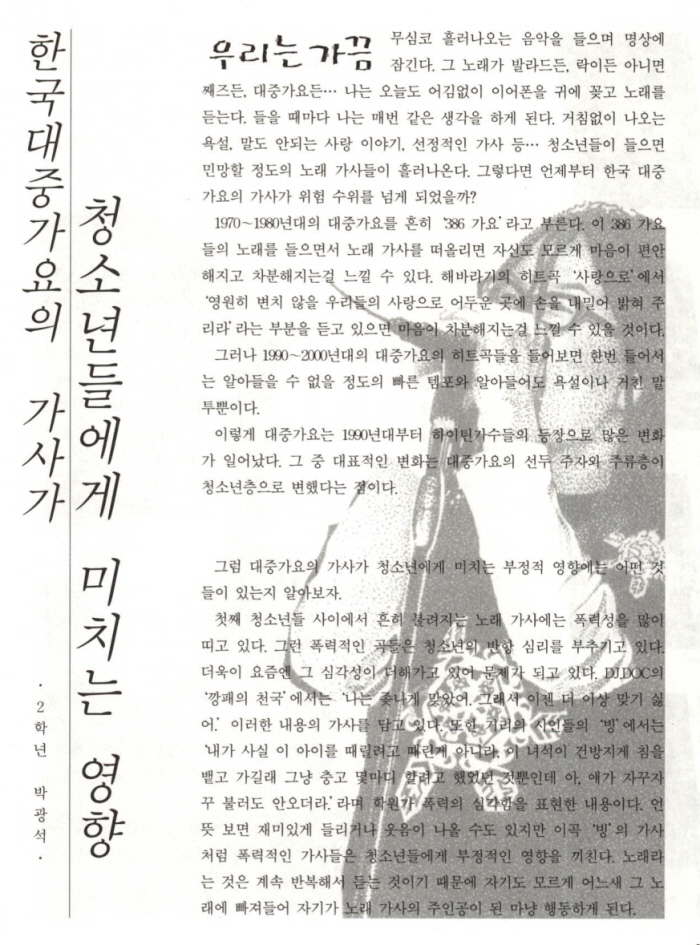 한국대중가요의 가사가
청소년들에게 미치는 영향
· 2학년 박광석 ·
우리는 가끔 무심코 흘러나오는 음악을 들으며 명상에
잠긴다. 그 노래가 발라드든, 락이든 아니면
째즈든, 대중가요든… 나는 오늘도 어김없이 이어폰을 귀에 꽂고 노래를
듣는다. 들을 때마다 나는 매번 같은 생각을 하게 된다. 거침없이 나오는
욕설, 말도 안되는 사랑 이야기, 선정적인 가사 등… 청소년들이 들으면
민망할 정도의 노래 가사들이 흘러나온다. 그렇다면 언제부터 한국 대중
가요의 가사가 위험 수위를 넘게 되었을까?
1970~1980년대의 대중가요를 흔히 '386 가요'라고 부른다. 이 386 가요
들의 노래를 들으면서 노래 가사를 떠올리면 자신도 모르게 마음이 편안
해지고 차분해지는걸 느낄 수 있다. 해바라기의 히트곡 '사랑으로'에서
'영원히 변치 않을 우리들의 사랑으로 어두운 곳에 손을 내밀어 밝혀 주
리라'라는 부분을 듣고 있으면 마음이 차분해지는걸 느낄 수 있을 것이다.
그러나 1990~2000년대의 대중가요의 히트곡들을 들어보면 한번 들어서
는 알아들을 수 없을 정도의 빠른 템포와 알아들어도 욕설이나 거친 말
투뿐이다.
이렇게 대중가요는 1990년대부터 하이틴가수들의 등장으로 많은 변화
가 일어났다. 그 중 대표적인 변화는 대중가요의 선두 주자와 주류층이
청소년층으로 변했다는 점이다.
그럼 대중가요의 가사가 청소년에게 미치는 부정적 영향에는 어떤 것
들이 있는지 알아보자.
첫째 청소년들 사이에서 흔히 불려지는 노래 가사에는 폭력성을 많이
띠고 있다. 그런 폭력적인 곡들은 청소년의 반항 심리를 부추기고 있다.
더욱이 요즘엔 그 심각성이 더해가고 있어 문제가 되고 있다. DJ.DOC의
'깡패의 천국'에서는 '나는 좆나게 맞았어. 그래서 이젠 더 이상 맞기 싫
어.' 이러한 내용의 가사를 담고 있다. 또한 거리의 시인들의 '빙'에서는
'내가 사실 이 아이를 때릴려고 때린게 아니라, 이 녀석이 건방지게 침을
뱉고 가길래 그냥 충고 몇마디 할려고 했었던 것뿐인데 아, 얘가 자꾸자
꾸 불러도 안오더라.'라며 학원가 폭력의 심각함을 표현한 내용이다. 언
뜻 보면 재미있게 들리거나 웃음이 나올 수도 있지만 이곡 '빙'의 가사
처럼 폭력적인 가사들은 청소년들에게 부정적인 영향을 끼친다. 노래라
는 것은 계속 반복해서 듣는 것이기 때문에 자기도 모르게 어느새 그 노
래에 빠져들어 자기가 노래 가사의 주인공이 된 마냥 행동하게 된다.